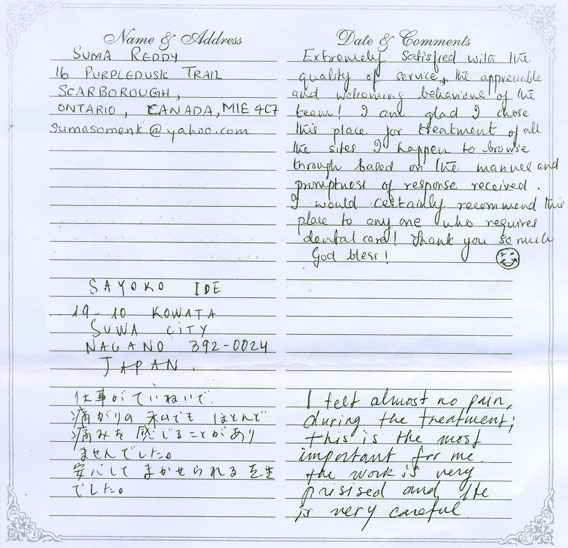 Name & Address
SUMA REDDY
16 PURPLEDUSK TRAIL
SCARBOROUGH,
ONTARIO, CANADA, M1E 4C7
sumasomenk@yahoo.com
Date & Comments
Extremely satisfied with the
quality of service, the
and welcoming behaviour of the
team! I am glad I chose
this place for treatment of all
the sites I happen to browse
through based on the manner and
promptness of response received.
I would certainly recommend this
place to any one who requires
dental care! Thank you so much
God bless!
SAYOKO IDE
19-10 KOWATA
SUWA CITY
NAGANO 392-0024
JAPAN.
仕事がていねいで、
痛がりの私でもほとんど
痛みを感じることがあり
ませんでした。
安心して まかせられる先生
でした。
I felt almost no pain,
during the treatment;
this is the most
important for me
the work is very
presised and
is very careful